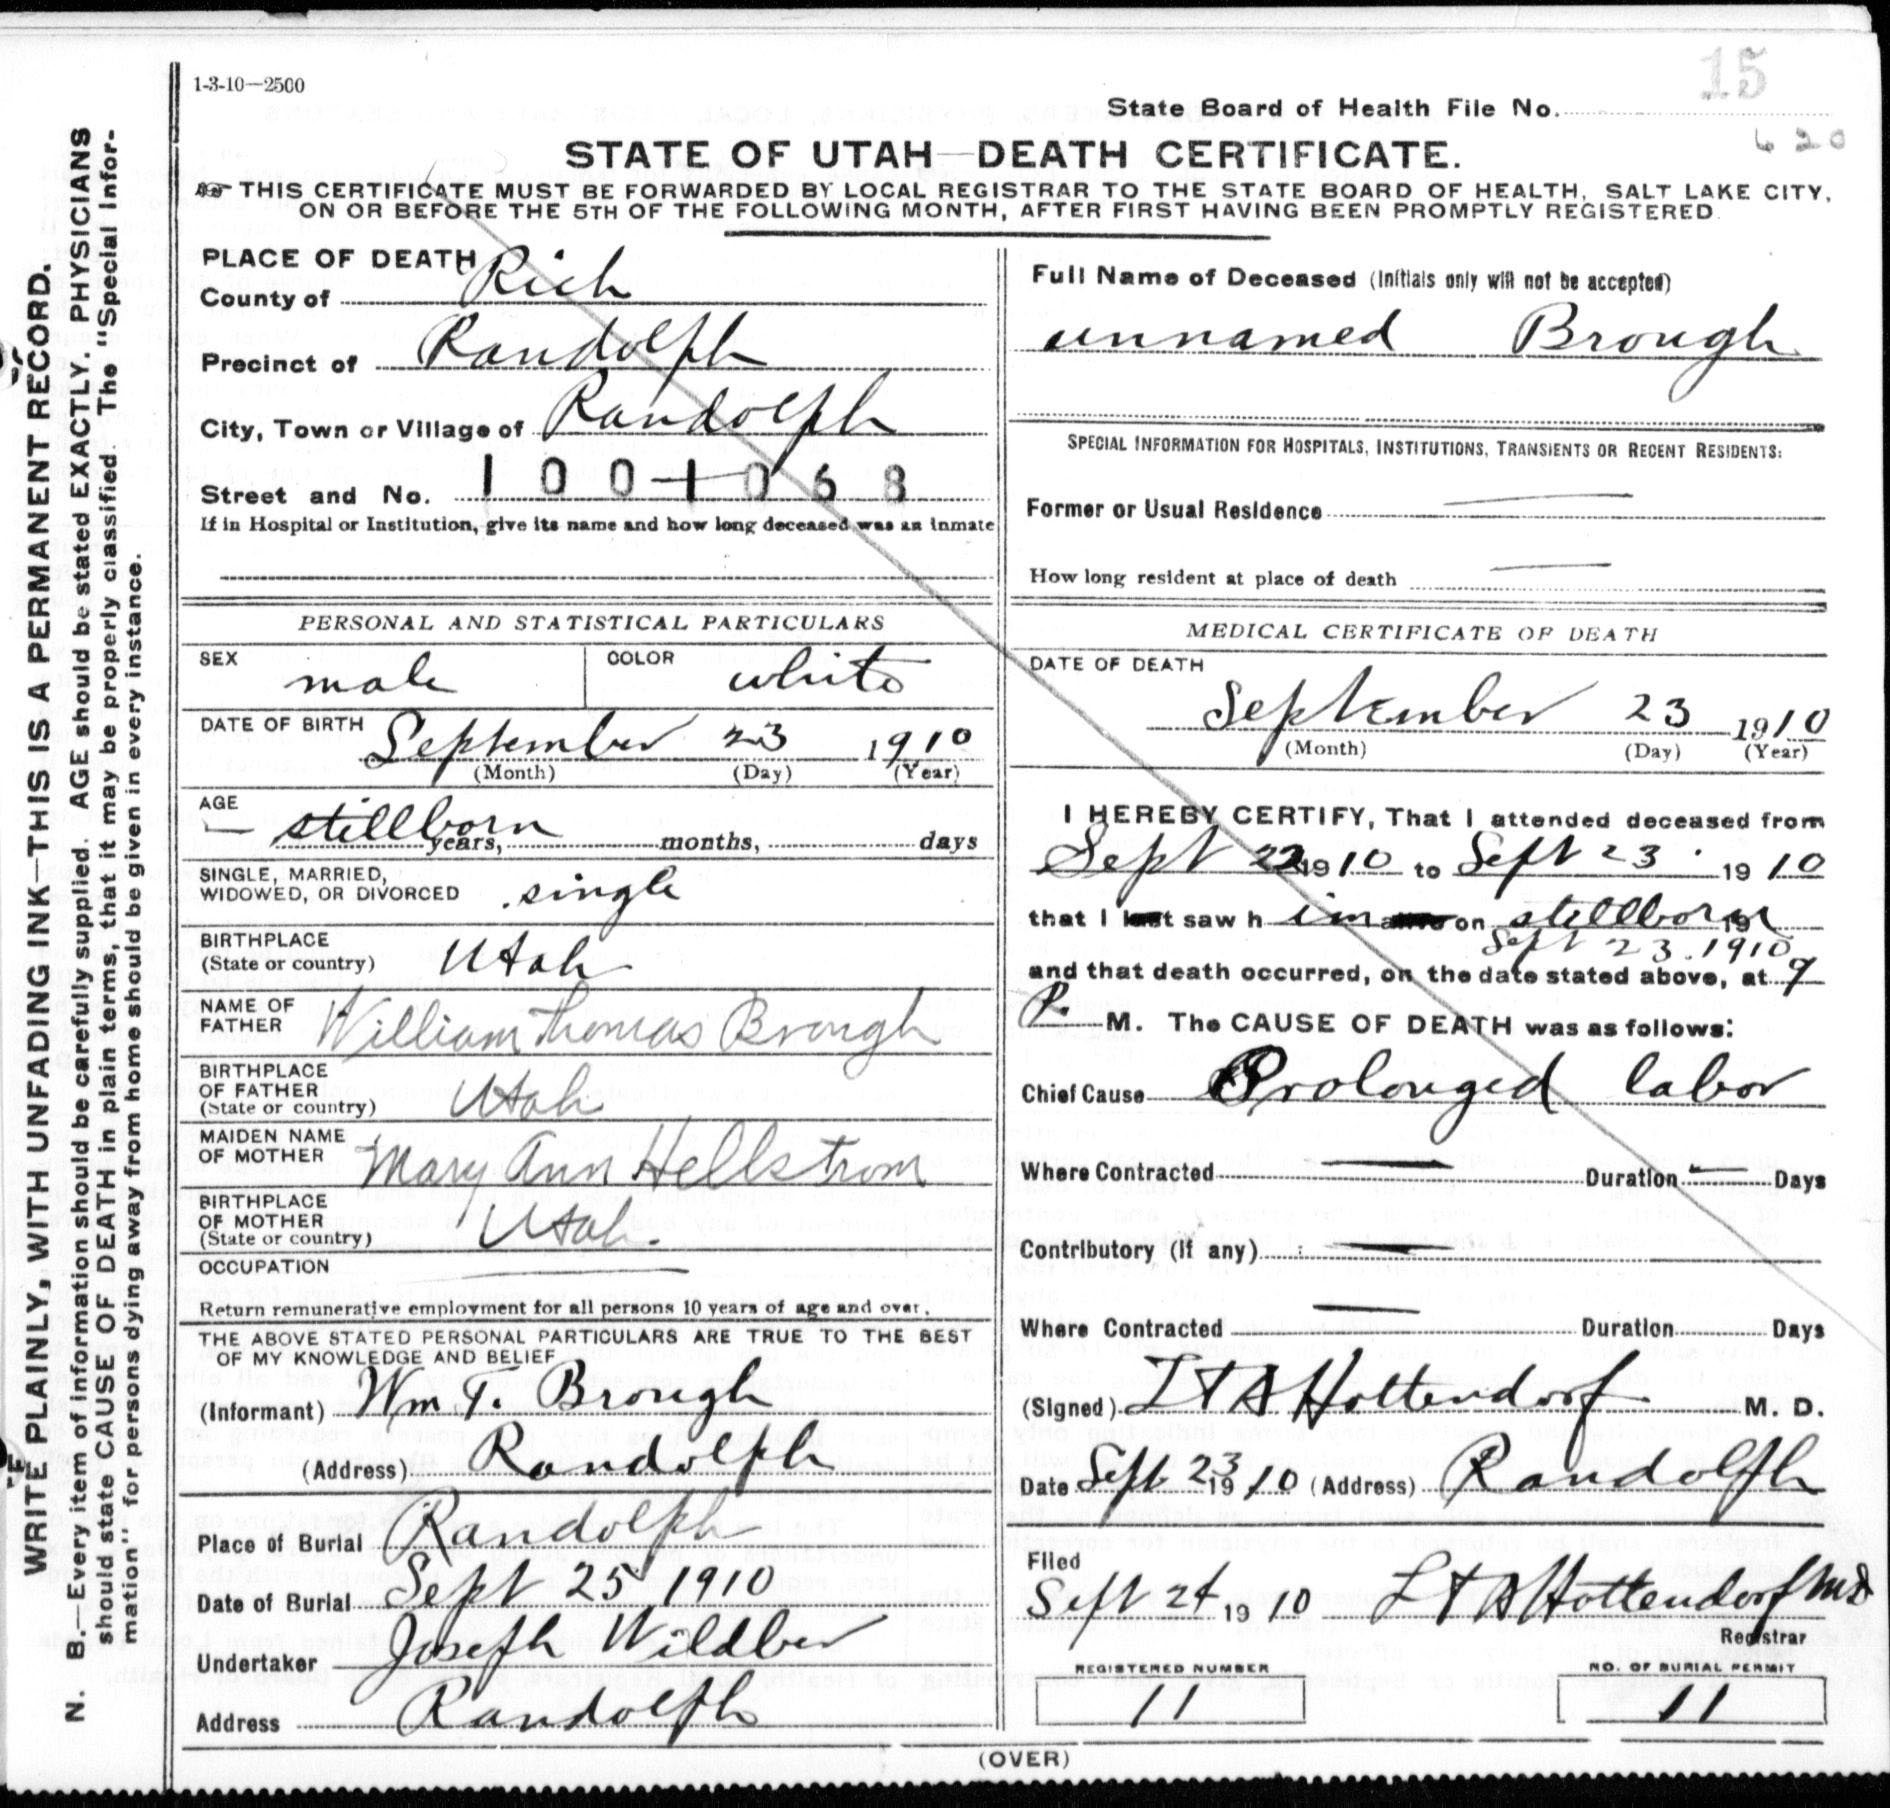 1-3-10—2500
15
State Board of Health File No.
620
STATE OF UTAH—DEATH CERTIFICATE.
THIS CERTIFICATE MUST BE FORWARDED BY LOCAL REGISTRAR TO THE STATE BOARD OF HEALTH, SALT LAKE CITY,
ON OR BEFORE THE 5TH OF THE FOLLOWING MONTH, AFTER FIRST HAVING BEEN PROMPTLY REGISTERED.
PLACE OF DEATH
County of Rich
Precinct of Randolph
City, Town or Village of Randolph
Street and No. 1001068
If in Hospital or Institution, give its name and how long deceased was an inmate
PERSONAL AND STATISTICAL PARTICULARS
SEX male COLOR white
DATE OF BIRTH September 23 1910
(Month) (Day) (Year)
AGE
— stillborn years, months, days
SINGLE, MARRIED,
WIDOWED, OR DIVORCED single
BIRTHPLACE
(State or country) Utah
NAME OF
FATHER William Thomas Brough
BIRTHPLACE
OF FATHER
(State or country) Utah
MAIDEN NAME
OF MOTHER Mary Ann Hellstrom
BIRTHPLACE
OF MOTHER
(State or country) Utah.
OCCUPATION
Return remunerative employment for all persons 10 years of age and over.
THE ABOVE STATED PERSONAL PARTICULARS ARE TRUE TO THE BEST
OF MY KNOWLEDGE AND BELIEF
(Informant) Wm T. Brough
(Address) Randolph
Place of Burial Randolph
Date of Burial Sept 25 1910
Undertaker Joseph Wildber
Address Randolph
Full Name of Deceased (Initials only will not be accepted)
unnamed Brough
SPECIAL INFORMATION FOR HOSPITALS, INSTITUTIONS, TRANSIENTS OR RECENT RESIDENTS:
Former or Usual Residence
How long resident at place of death
MEDICAL CERTIFICATE OF DEATH
DATE OF DEATH
September 23 1910
(Month) (Day) (Year)
I HEREBY CERTIFY, That I attended deceased from
Sept 22 1910 to Sept 23. 1910
that I last saw him alive on stillborn 19
Sept 23. 1910
and that death occurred, on the date stated above, at 9
P. M. The CAUSE OF DEATH was as follows:
Chief Cause Prolonged labor
Where Contracted Duration Days
Contributory (If any)
Where Contracted Duration Days
(Signed) Hottendorf M. D.
Date Sept 23 1910 (Address) Randolph
Filed
Sept 24 1910 Hottendorf MD
Registrar
REGISTERED NUMBER
11
NO. OF BURIAL PERMIT
11
(OVER)
WRITE PLAINLY, WITH UNFADING INK—THIS IS A PERMANENT RECORD.
N. B.—Every item of information should be carefully supplied. AGE should be stated EXACTLY. PHYSICIANS
should state CAUSE OF DEATH in plain terms, that it may be properly classified. The "Special Infor-
mation" for persons dying away from home should be given in every instance.